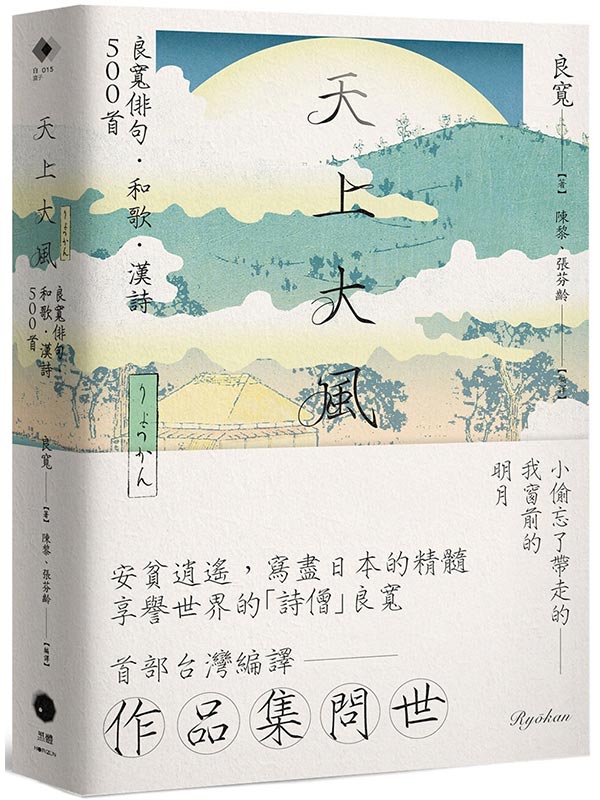 天上大風
良寬俳句．和歌．漢詩
500首
りょうかん
良寬
【著】
陳黎、張芬齡
【編譯】
小偷忘了帶走的——
我窗前的
明月
安貧逍遙，寫盡日本的精髓
享譽世界的「詩僧」良寬
首部台灣編譯——
作品集問世
Ryōkan
白盒子
015
天上大風
りょうかん
良寬俳句．
和歌．漢詩
500首
良寬
【著】
陳黎、張芬齡
【編譯】
黑體
HORIZON